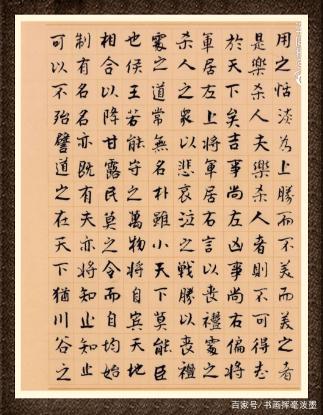 用之恬淡為上勝而不美而美之者
是樂殺人夫樂殺人者則不可得志
於天下矣吉事尚左凶事尚右偏將
軍居左上將軍居右言以喪禮處之
殺人之眾以悲哀泣之戰勝以喪禮
處之道常無名朴雖小天下莫能臣
也侯王若能守之萬物將自賓天地
相合以降甘露民莫之令而自均始
制有名名亦既有夫亦將知止知止
可以不殆譬道之在天下猶川谷之
百家号/书画挥毫泼墨